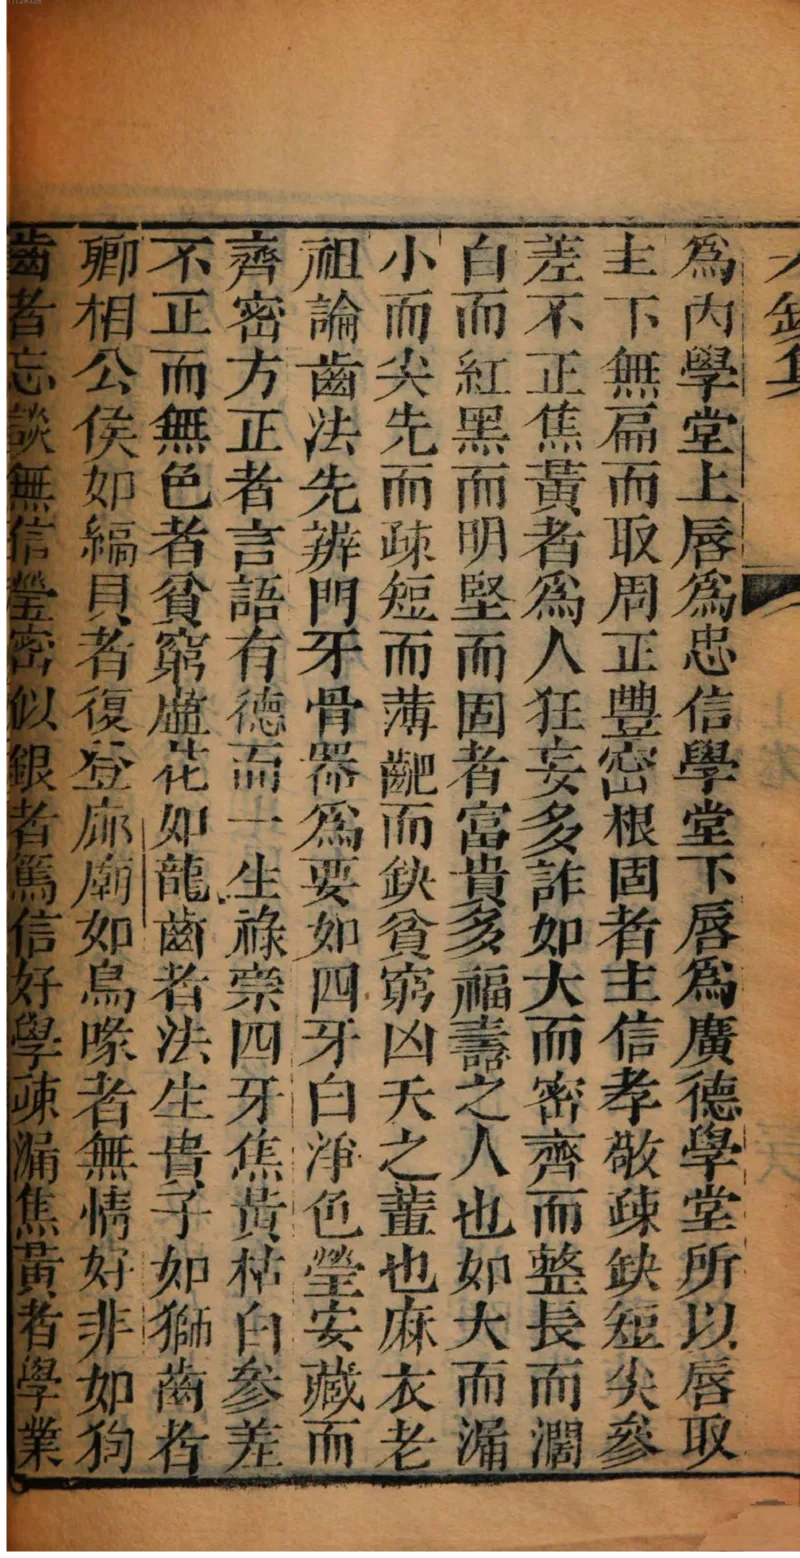 為內學堂上唇為忠信學堂下唇為廣德學堂所以唇取
主下無扁而取周正豐密根固者主信孝敬疎缺短尖參
差不正焦黃者為人狂妄多詐如大而密齊而整長而濶
白而紅黑而明堅而固者富貴多福壽之人也如大而漏
小而尖先而疎短而薄齙而缺貧窮凶夭之輩也麻衣老
祖論齒法先辨門牙骨器為要如四牙白淨色瑩安藏而
齊密方正者言語有德而一生祿崇四牙焦黃枯白參差
不正而無色者貧窮虛花如龍齒者法生貴子如獅齒者
卿相公侯如編貝者復登廊廟如鳥喙者無情好非如狗
齒者忘談無信瑩密似銀者篤信好學疎漏焦黃者學業